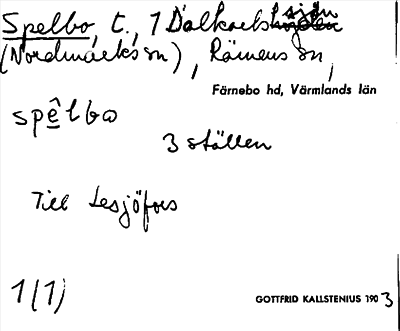 Spelbo, t., 1 Dalkarlssjön
(Nordmarks sn), Rämens sn,
Färnebo hd, Värmlands län
spêlbo
3 ställen
Till Lesjöfors
1(1)
GOTTFRID KALLSTENIUS 1903